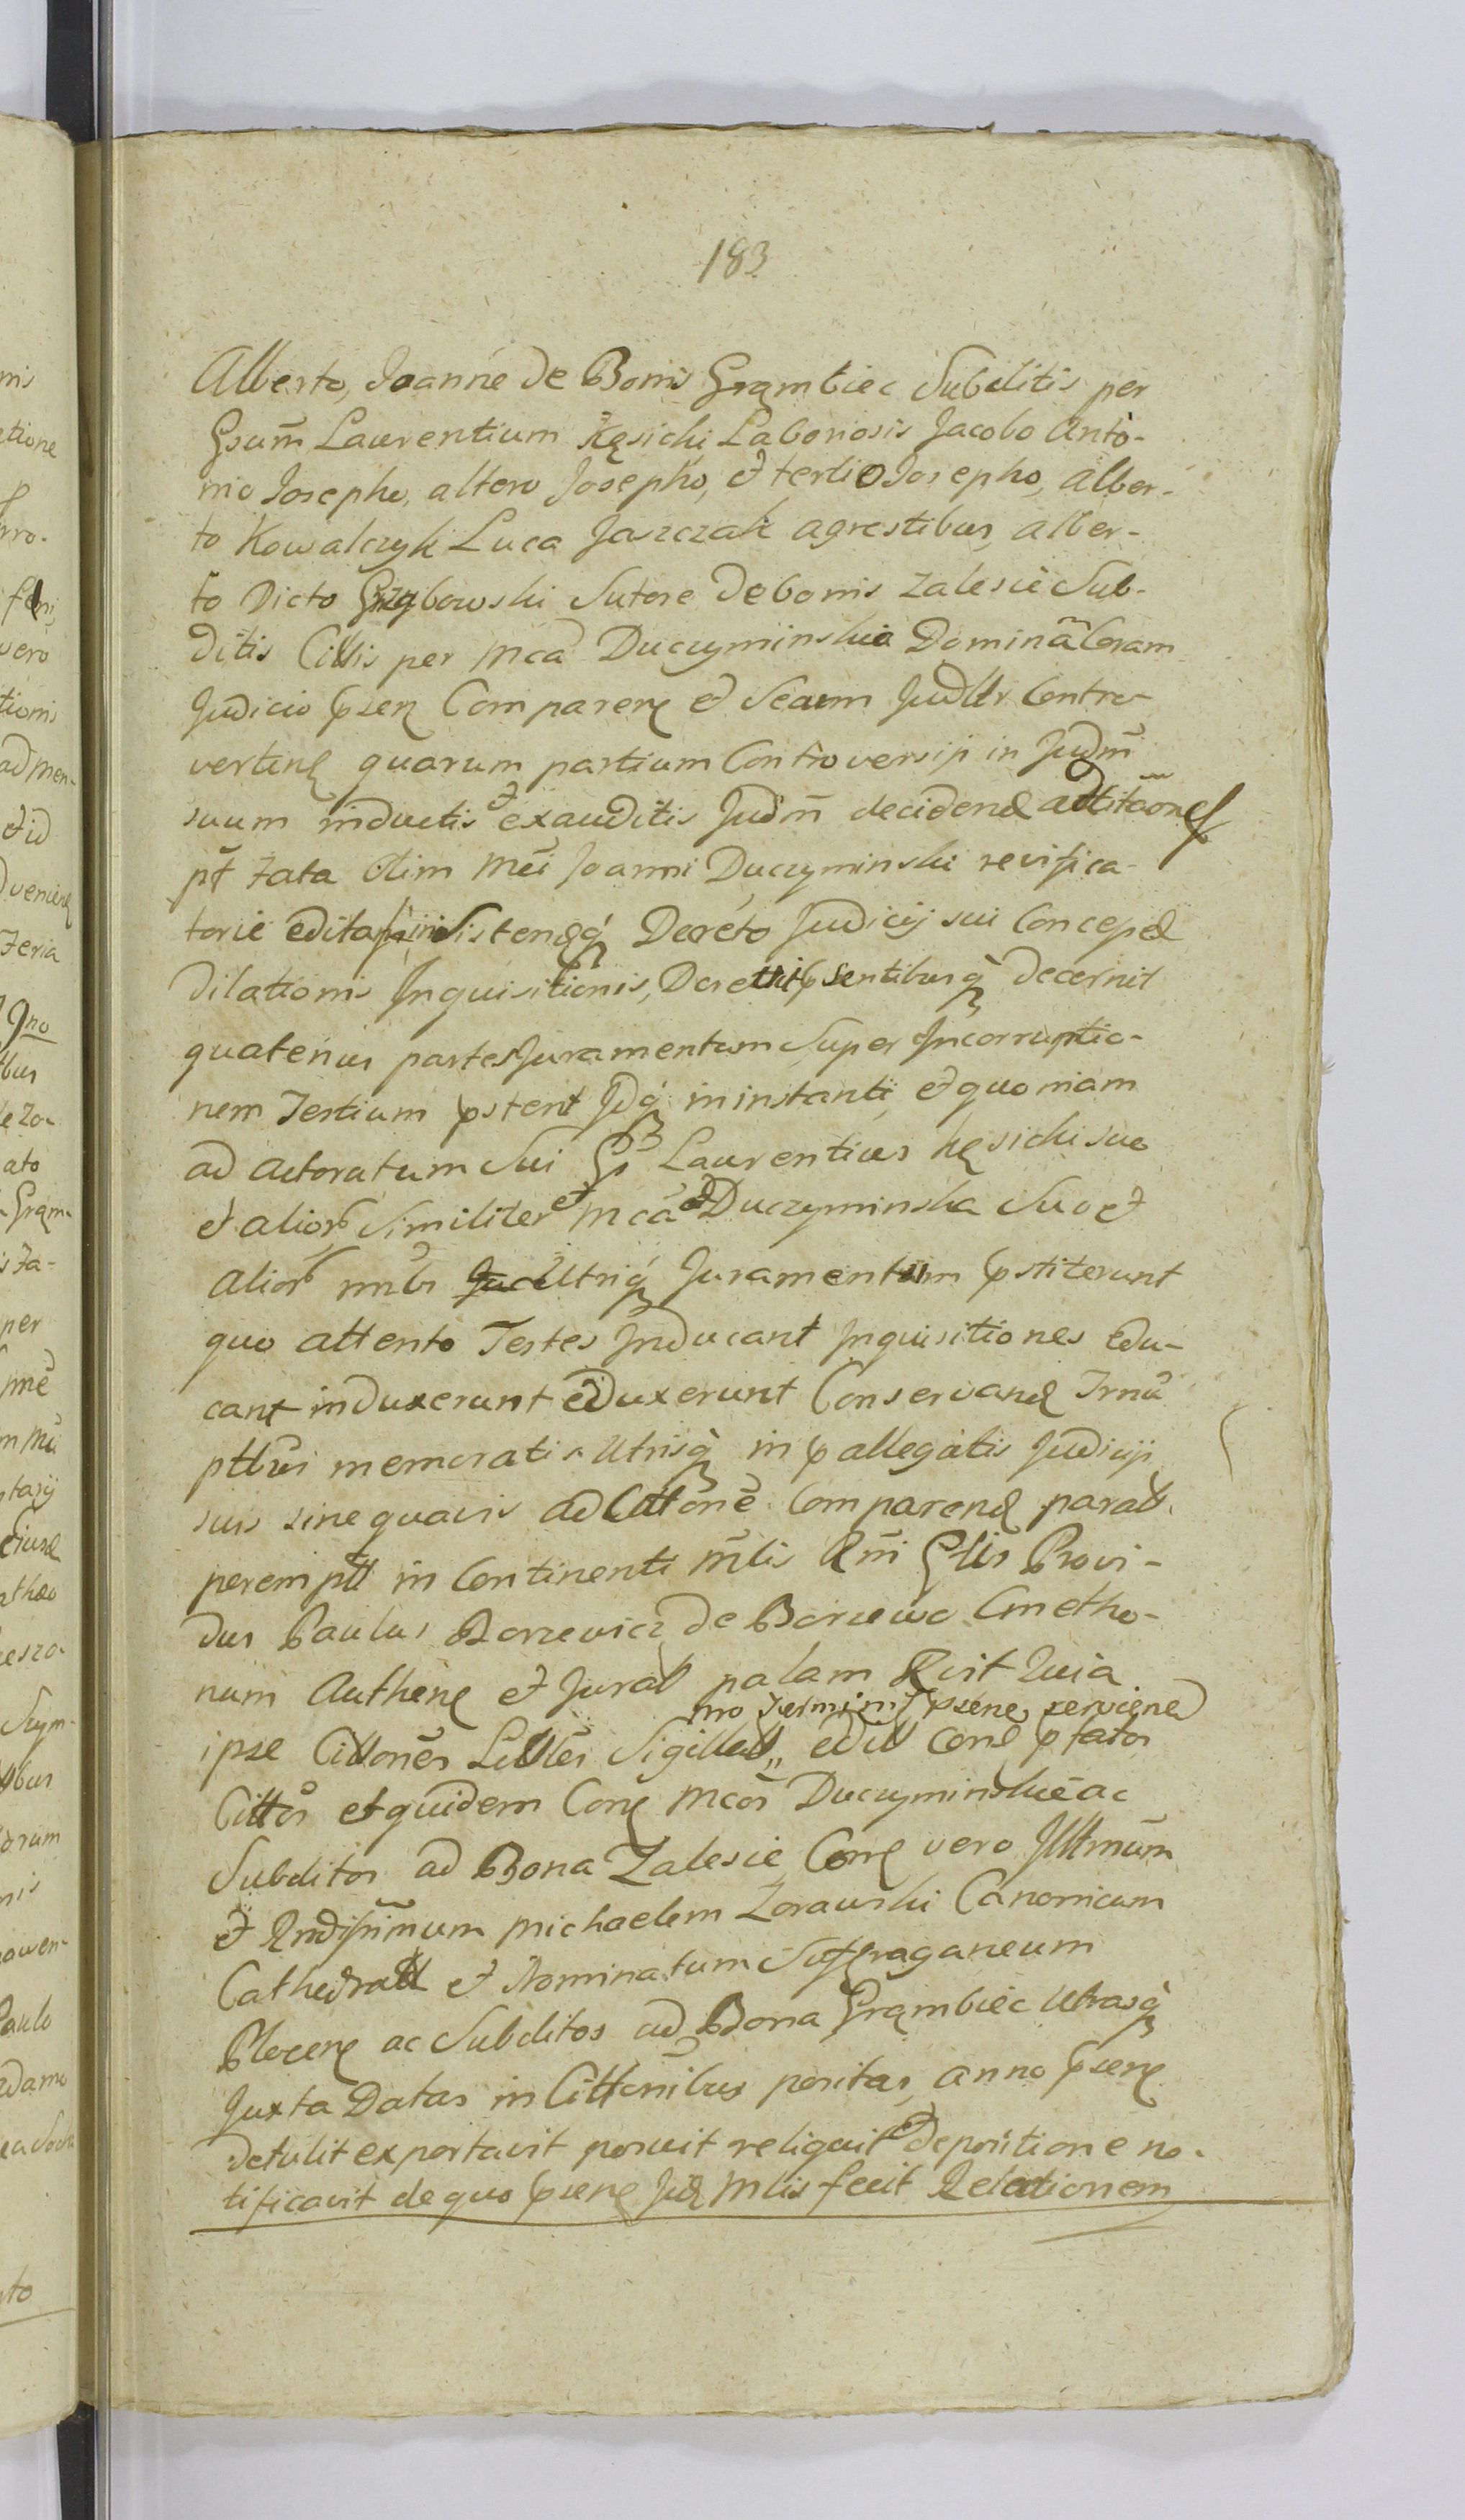 183
Alberto, Joanne de Bonis Grąmbiec Subditis per
Gsum̄ Laurentium Kęsicki Laboriosis Jacobo Anto-
nio Josepho, altero Josepho, et tertio Josepho, Alber-
to Kowalczyk Luca Jaszczak agrestibus, alber-
to Dicto Grzybowski Sutore de bonis Zalesie Sub-
ditis Cittis per Mcā Duczyminska Dominā Coram
Judicio psen Comparen et Seaum Judltr Contro-
verten quarum partium Controversiis in Judm̄
suum inductis et exauditis Judm̄ decidend
pt̄ Zata Olim Mci Joanni Duczyminski revifica-
torie Decreto Judicij sui Conceped
dilationis Inquisitionis, decernit
quatenus partes Juramentum Super Incorruptio-
nem Testium pstent Jdq in instanti, et quoniam
ad actoratum Sui Gs Laurentius Kęsicki suo
et alior Similiter et Mca Duczyminska Suo et
alior nnbr Utriq Juramentum pstiterunt
quo attento Testes Inducant Inquisitiones Edu-
cant induxerunt eduxerunt Conservand Trm̄a
ptbus memoratis Utrisq in pallegatis Judicijs
suis sine quavis adCittonē Comparend parat.
perempt in Continenti Mlis Rm̄i Glis Provi-
dus Paulus Borzewicz de Borzewo Cmetho-
num Authen et Jurat palam Rvit Quia
mo Termino psene serviend
ipse Cittones Litteis Sigillat,, edit Cone pfatos
Cittos et quidem Cone Mcos Duczyminskie ac
Subditos ad Bona Zalesie Cone vero Illmum
et Rndissimum Michaelem Zorawski Canonicum
Cathedrall et Nominatum Suffraganeum
Plocene ac Subditos ad Bona Grąmbiec Utrasq
Juxta Datas in Cittonibus positas, anno psene
detulit exportavit posuit reliquit et depositione no-
tificavit de quo psene Jud Mlis fecit Relationem